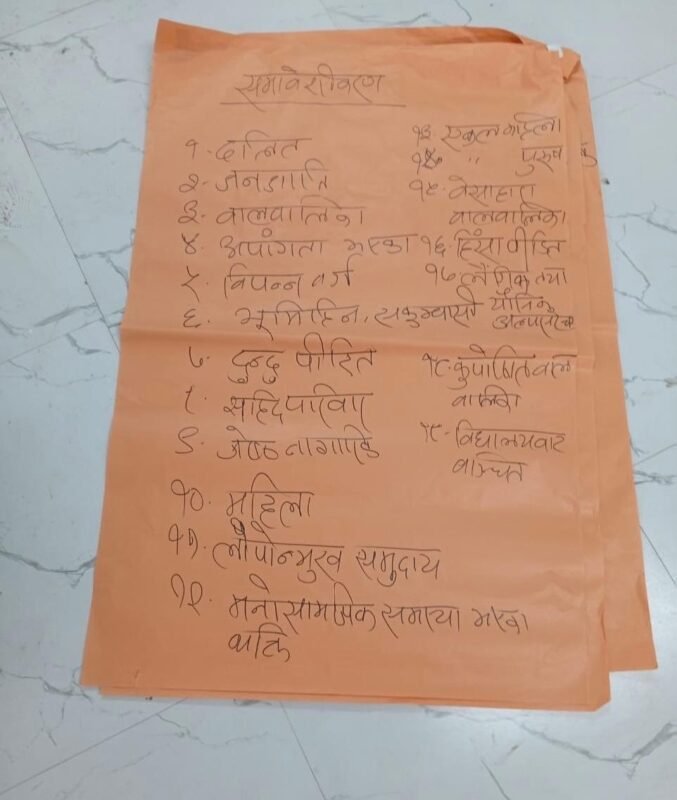 समावेशीकरण
१. दलित
२. जनजाति
३. बालबालिका
४. अपांगता भएका
५. विपन्न वर्ग
६. भूमिहिन, सुकुम्वासी
७. द्वन्द्व पीडित
८. सहिद परिवार
९. जेष्ठ नागरिक
१०. महिला
११. लोपोन्मुख समुदाय
१२. मनोसामाजिक समस्या भएका
व्यक्ति
१३. एकल महिला
१४. " पुरुष
१५. बेसाहारा
बालबालिका
१६. हिंसा पीडित
१७. लैंगिक तथा
यौनिक
अल्पसंख्यक
१८. कुपोषित बाल
बालिका
१९. विद्यालयबाट
बञ्चित